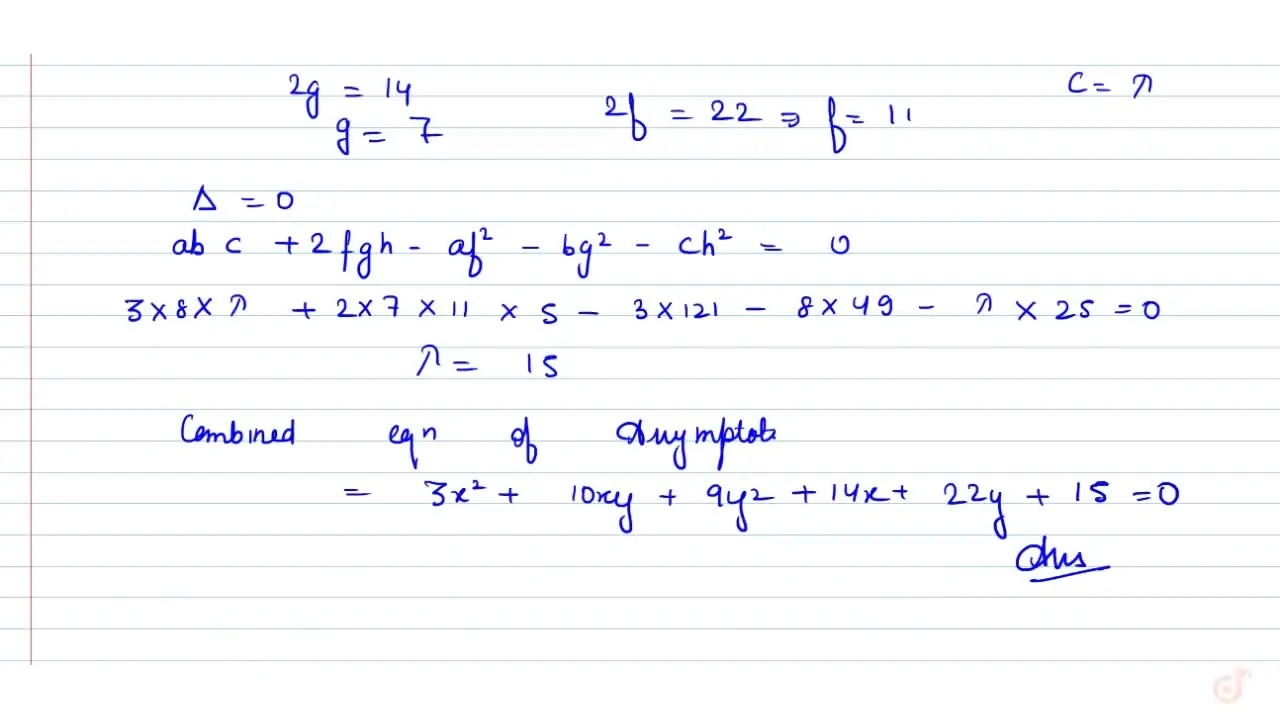 2g = 14
g = 7
2f = 22 ⇒ f = 11
C = λ
Δ = 0
abc + 2fgh - af² - bg² - ch² = 0
3×8×λ + 2×7×11×5 - 3×121 - 8×49 - λ×25 = 0
λ = 15
Combined eqn of Asymptote
= 3x² + 10xy + 9y2 + 14x + 22y + 15 = 0
Ans